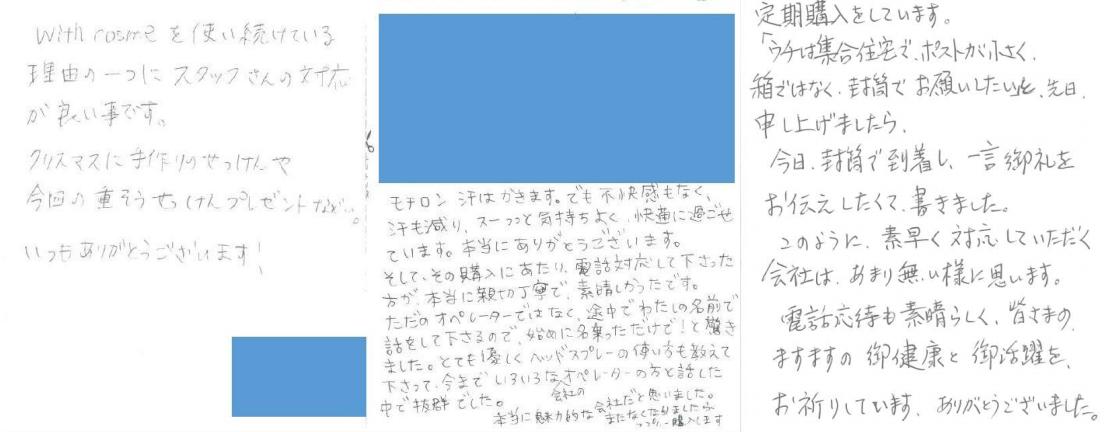 with cosmeを使い続けている
理由の一つに スタッフさんの対応
が良い事です。
クリスマスに手作りのせっけんや
今回の重そうせっけんプレゼントなど…。
いつもありがとうございます!
モチロン 汗はかきます。でも不快感もなく、
汗も減り、スーッっと気持ちよく、快適に過ごせ
ています。本当にありがとうございます。
そして、その購入にあたり、電話対応して下さった
方が、本当に親切丁寧で、素晴しかったです。
ただのオペレーターではなく、途中でわたしの名前で
話をして下さるので、始めに名乗っただけで!と驚き
ました。とても優しくヘッドスプレーの使い方も教えて
下さって、今までいろいろなオペレーターの方と話した
中で抜群でした。
会社の
本当に魅力的な会社だと思いました。
またなくなりましたら
購入します
定期購入をしています。
「ウチは集合住宅で、ポストが小さく、
箱ではなく、封筒でお願いしたい」と、先日、
申し上げましたら、
今日、封筒で到着し、一言御礼を
お伝えしたくて、書きました。
このように、素早く対応していただく
会社は、あまり無い様に思います。
電話応待も素晴らしく、皆さまの、
ますますの御健康と御活躍を、
お祈りしています。ありがとうございました。